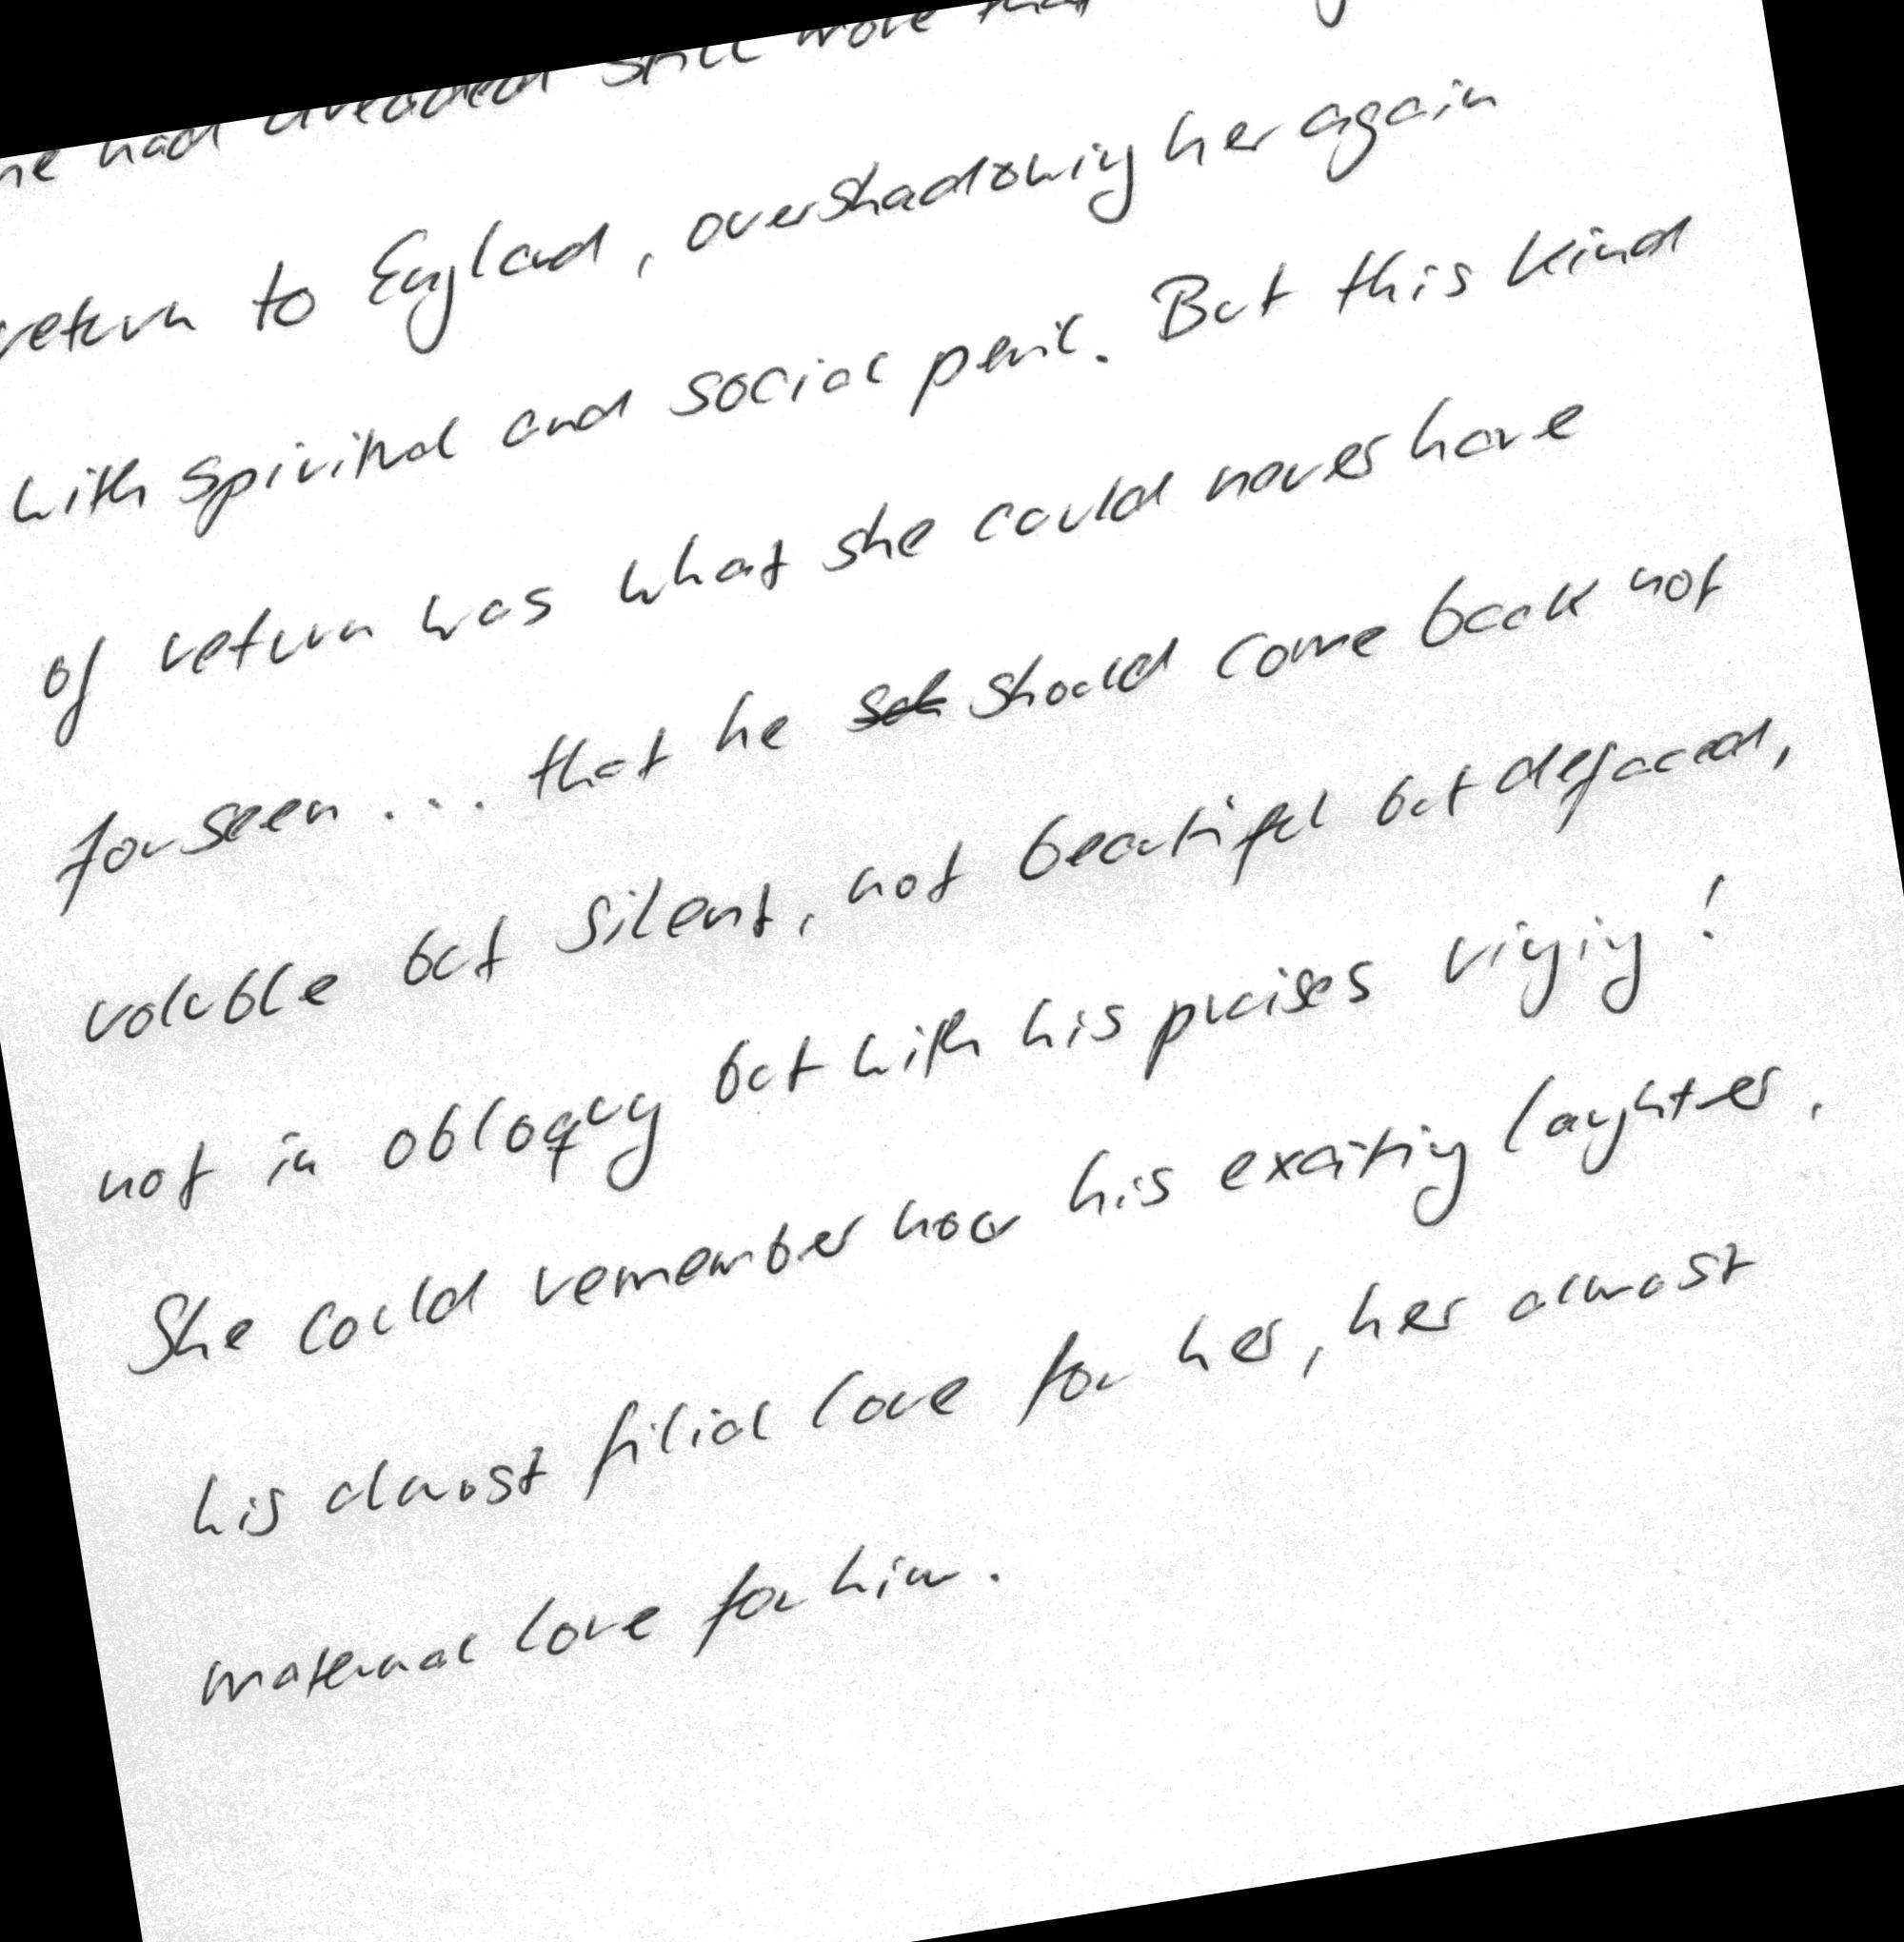 had dreaded still more that
return to England, overshadowing her again
with spiritual and social peril. But this kind
of return was what she could never have
forseen... that he should come back not
voluble but silent, not beautiful but defaced,
not in obloquy but with his praises ringing!
She could remember now his exciting laughter,
his almost filial love for her, her almost
maternal love for him.